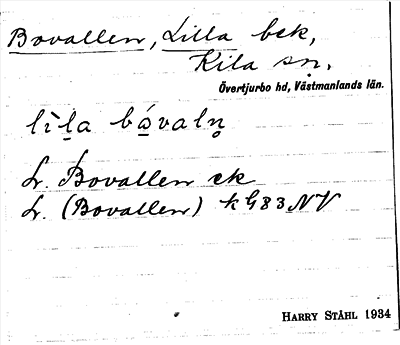 Bovallen, Lilla bck,
Kila sn.
Övertjurbo hd, Västmanlands län.
lìla bávaln̥
L. Bovallen ek
L. (Bovallen) k G83 NV
HARRY STÅHL 1934